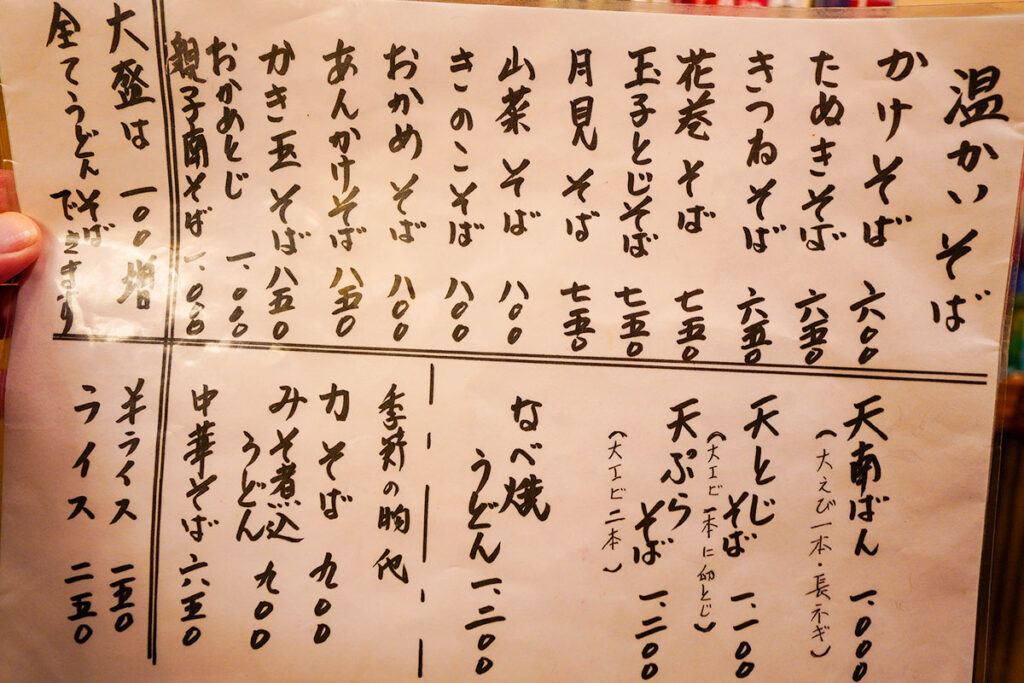 温かいそば
かけそば 六〇〇
たぬきそば 六五〇
きつねそば 六五〇
花巻そば 七五〇
玉子とじそば 七五〇
月見そば 七五〇
山菜そば 八〇〇
きのこそば 八〇〇
おかめそば 八〇〇
あんかけそば 八五〇
かき玉そば 八五〇
おかめとじ 一、〇〇〇
親子南そば 一、〇〇〇
大盛は一〇〇増
全てうどんそばできます
天南ばん 一、〇〇〇
(大えび一本・長ネギ)
天とじそば 一、一〇〇
(大エビ一本に卵とじ)
天ぷらそば 一、二〇〇
(大エビ二本)
なべ焼うどん 一、二〇〇
季節の物他
力そば 九〇〇
みそ煮込うどん 九〇〇
中華そば 六五〇
半ライス 一五〇
ライス 二五〇